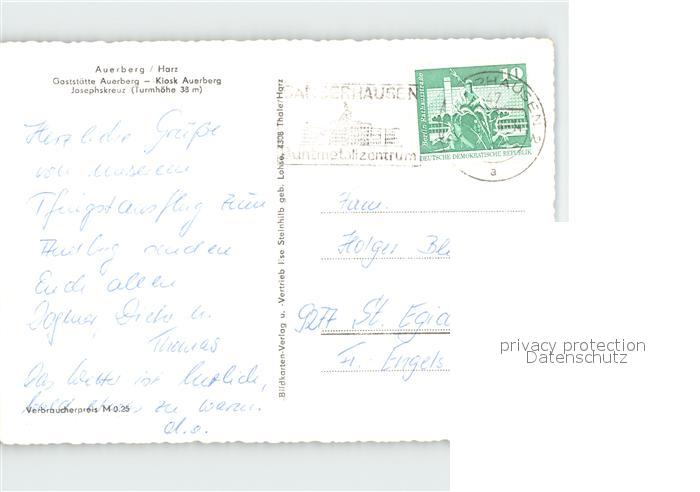 Auerberg / Harz
Gaststätte Auerberg – Kiosk Auerberg
Josephskreuz (Turmhöhe 38 m)
Herzliche Grüße
von unserem
Pfingstausflug zum
Auerberg senden
Euch allen
Dagmar, Dieter u.
Thomas
Das Wetter ist herrlich,
zu warm.
d.o.
Verbraucherpreis M 0.25
Bildkarten-Verlag u. -Vertrieb Ilse Steinhilb geb. Lohse, 4308 Thale/Harz
SANGERHAUSEN
Buntmetallzentrum
10
Berlin Rathausstraße
DEUTSCHE DEMOKRATISCHE REPUBLIK
a
Fam.
Holger Ble
9277 St. Egid
Fr.-Engels
privacy protection
Datenschutz